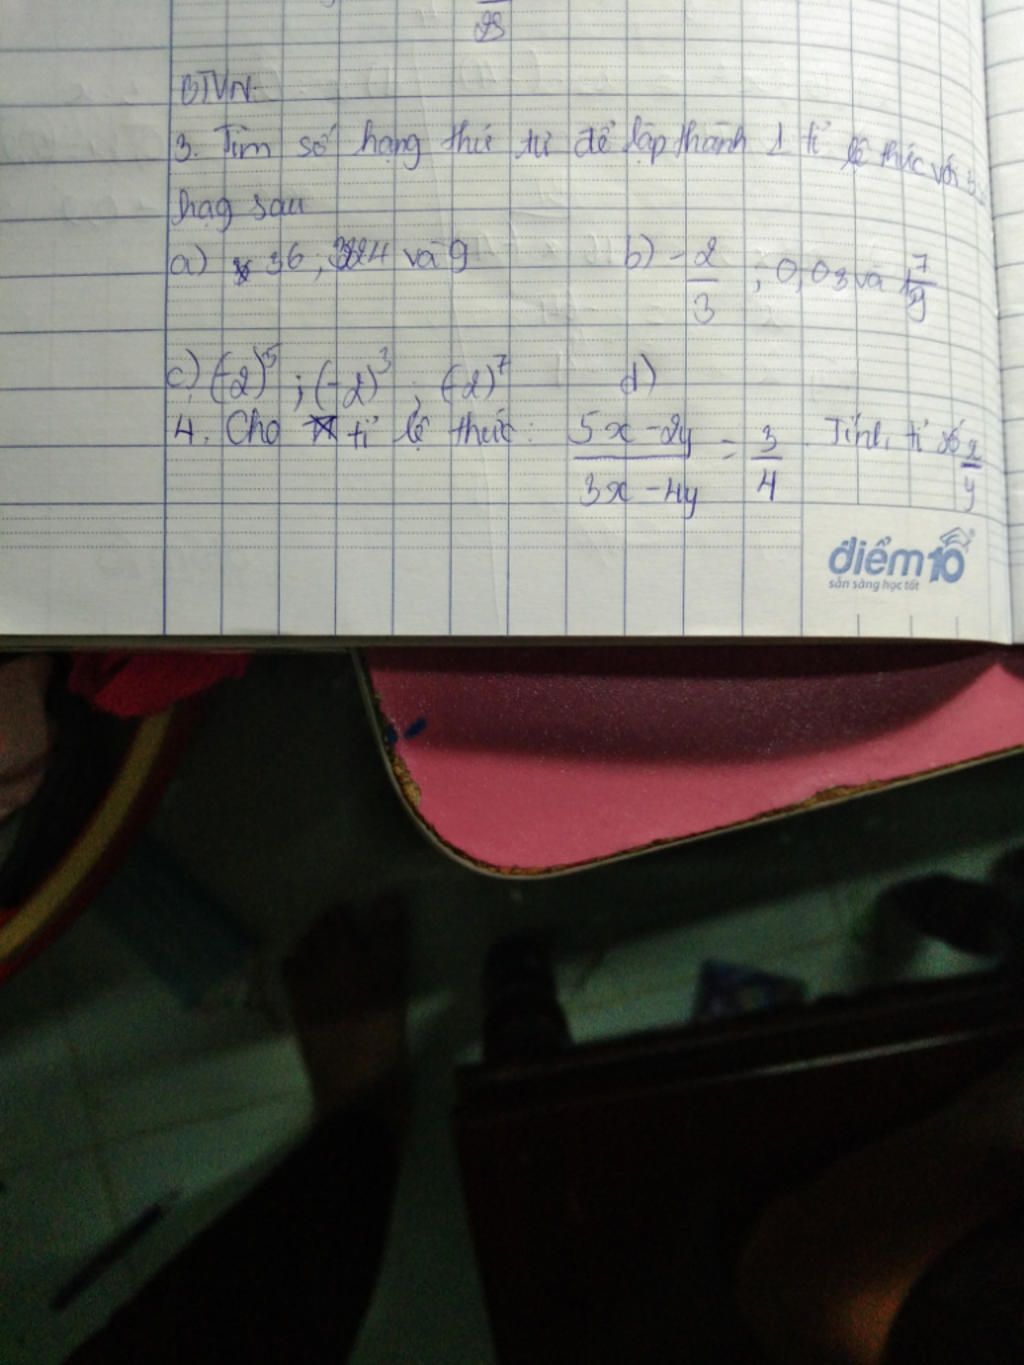 23
BTVN:
3. Tìm số hạng thứ tư để lập thành 1 tỉ lệ thức với 3 số
hạg sau
a) 36 ; 324 và 9 b) -2/3 ; 0,03 và 7/9
c) (-2)^5 ; (-2)^3 ; (-2)^7 d)
4. Cho tỉ lệ thức: (5x - 2y)/(3x - 4y) = 3/4. Tính tỉ số x/y
điểm10
sẵn sàng học tốt